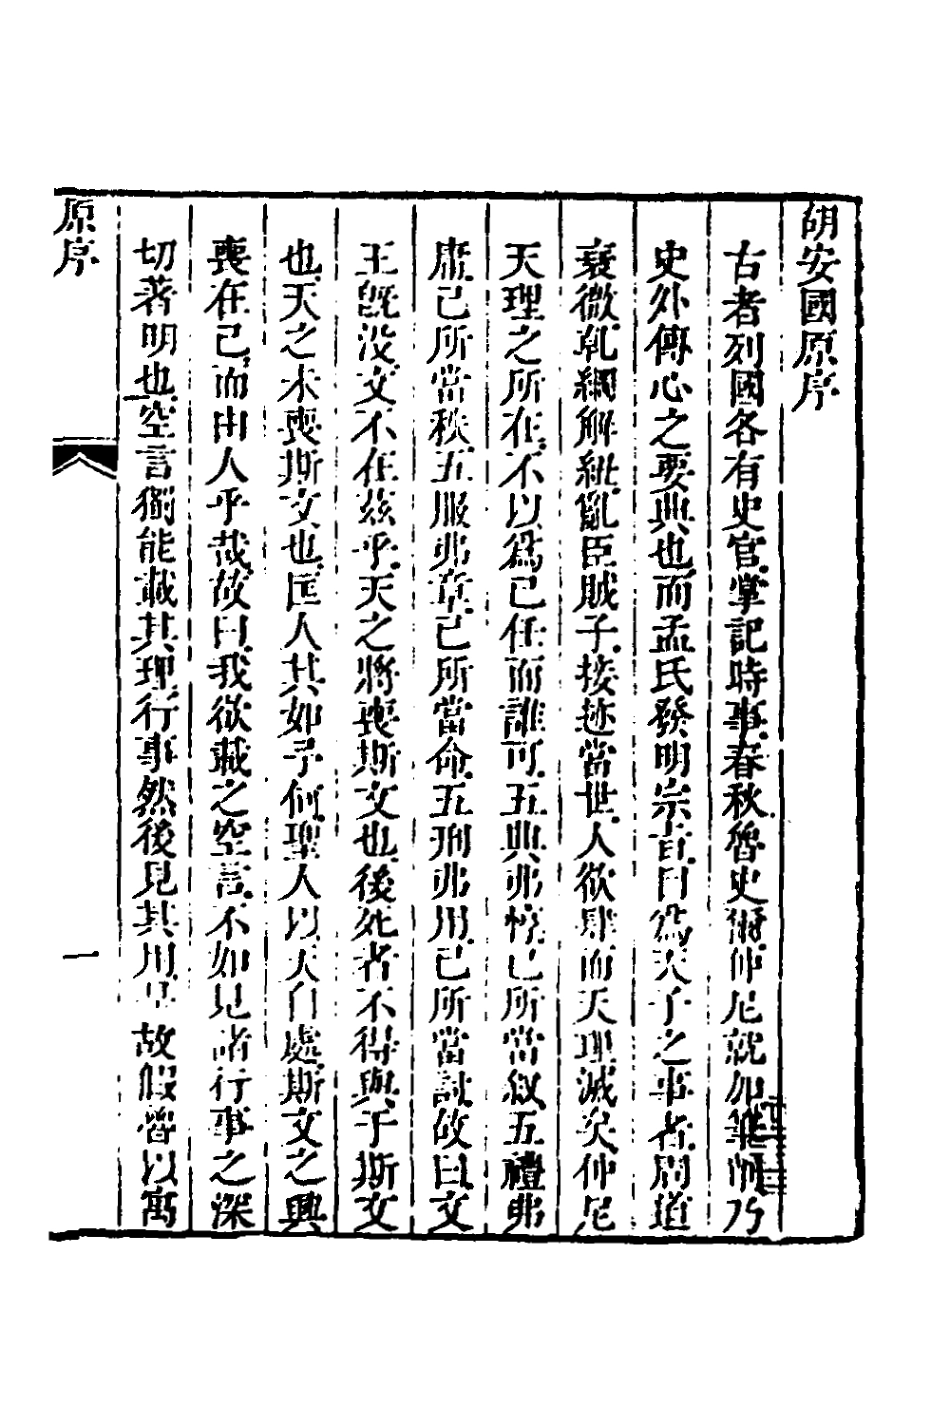 胡安國原序
古者列國各有史官掌記時事春秋魯史爾仲尼就加筆削乃
史外傳心之要典也而孟氏發明宗旨目為天子之事者周道
衰微乾綱解紐亂臣賊子接迹當世人欲肆而天理滅矣仲尼
天理之所在不以爲己任而誰可五典弗惇己所當叙五禮弗
庸己所當秩五服弗章己所當命五刑弗用己所當討故曰文
王旣沒文不在茲乎天之將喪斯文也後死者不得與于斯文
也天之未喪斯文也匡人其如予何聖人以天自處斯文之興
喪在己而由人乎哉故曰我欲載之空言不如見諸行事之深
切著明也空言獨能載其理行事然後見其用是故假魯以寓
原序
一